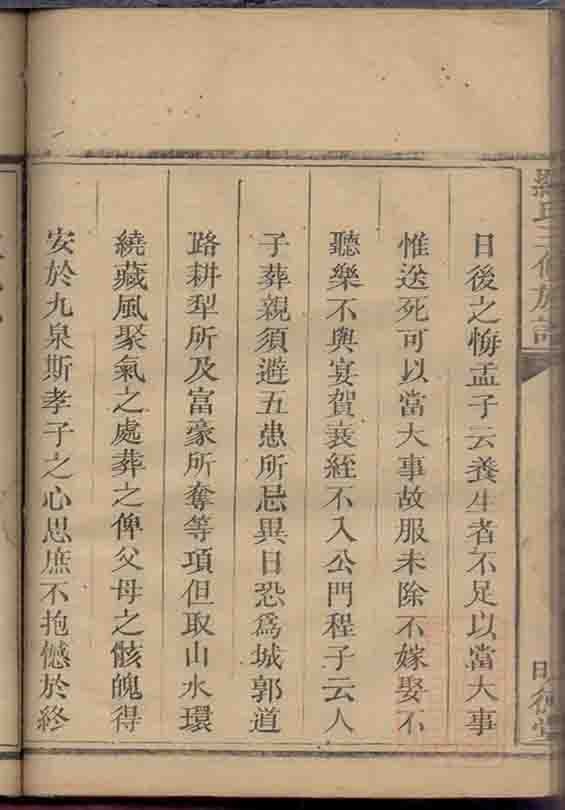 羅氏三修族譜
明德堂
日後之悔孟子云養生者不足以當大事
惟送死可以當大事故服未除不嫁娶不
聽樂不與宴賀衰絰不入公門程子云人
子葬親須避五患所忌異日恐爲城郭道
路耕犁所及富豪所奪等項但取山水環
繞藏風聚氣之處葬之俾父母之骸魄得
安於九泉斯孝子之心思庶不抱憾於終